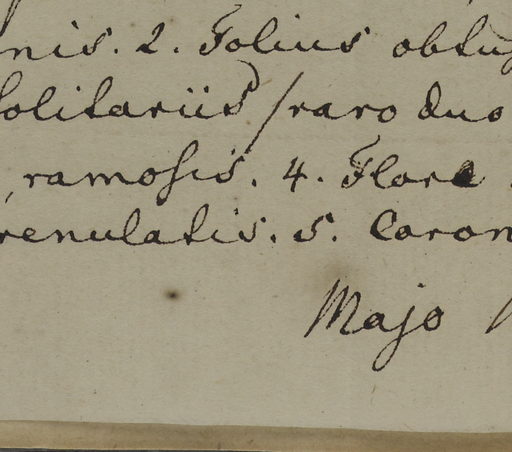 nis. 2. Folius obtus
solitariis) /raro duo
, ramosis. 4. Flore
renulatis. 5. Coron
Majo